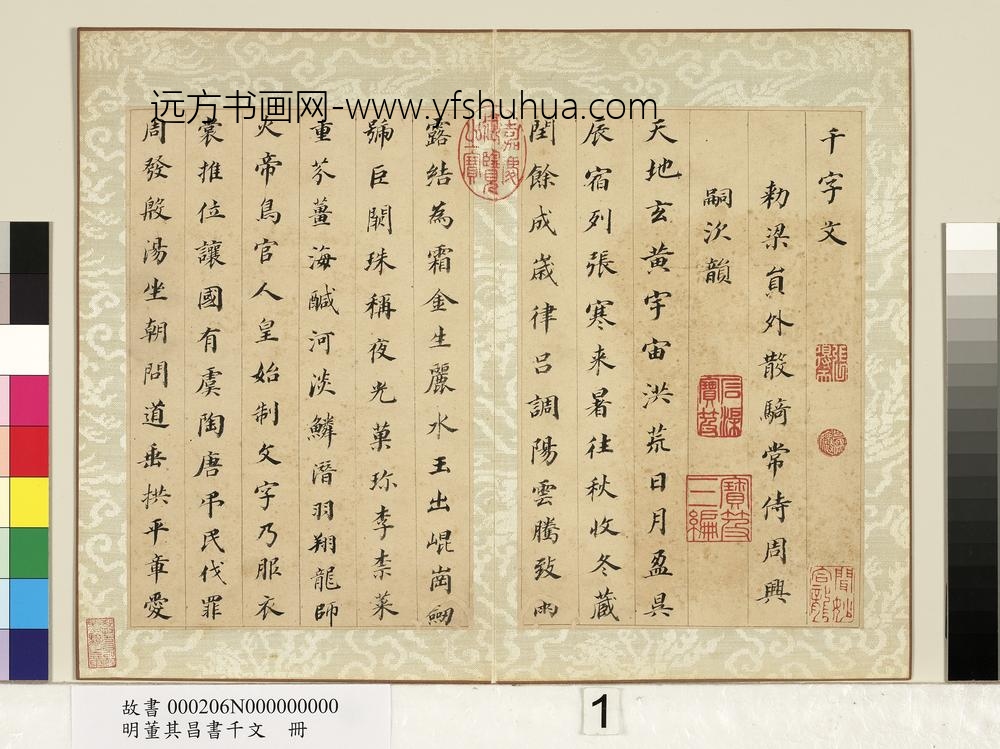 远方书画网-www.yfshuhua.com
千字文
勑梁員外散騎常侍周興
嗣次韻
天地玄黄宇宙洪荒日月盈昃
辰宿列張寒来暑往秋收冬蔵
閏餘成歲律吕調陽雲騰致雨
露結為霜金生麗水玉出崐崗劒
號巨闕珠稱夜光菓珎李柰菜
重芥薑海鹹河淡鱗潛羽翔龍師
火帝鳥官人皇始制文字乃服衣
裳推位讓國有虞陶唐弔民伐罪
周發殷湯坐朝問道垂拱平章愛
嘉慶御覽之寶
寶笈三編
故書 000206N000000000
明董其昌書千文 冊
1